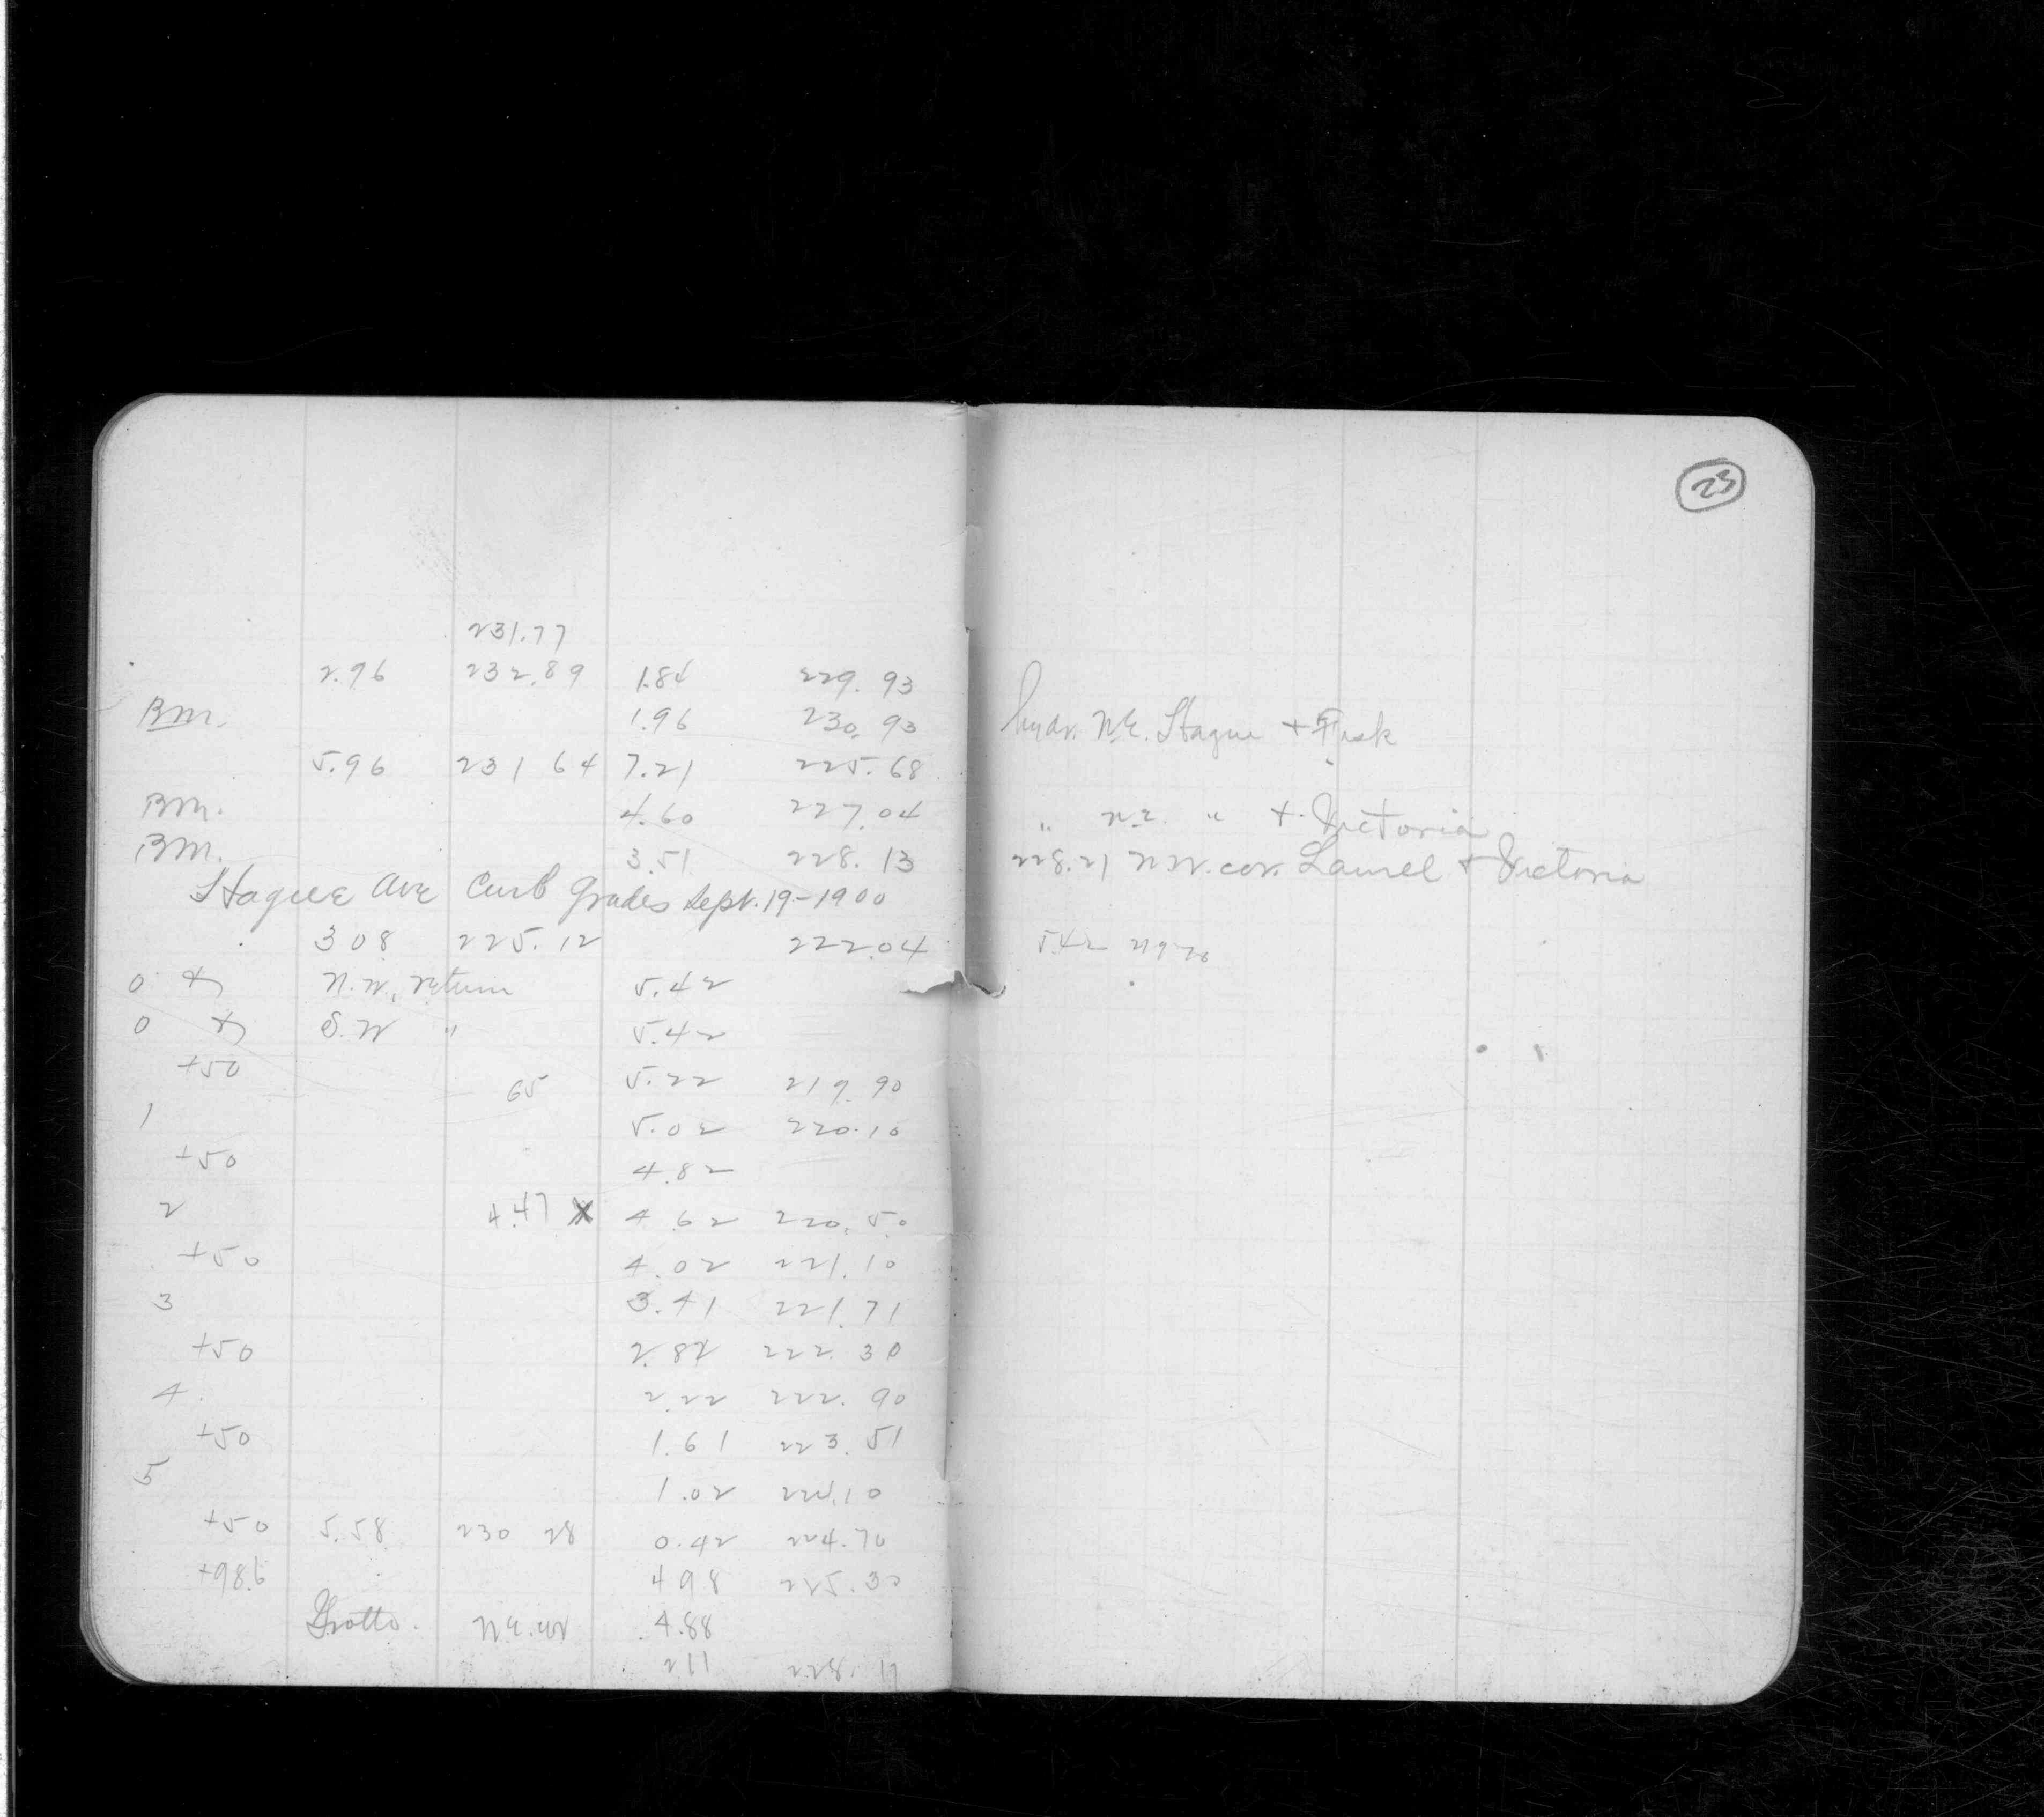 23
231.77
2.96 232.89 1.84 229.93
BM. 1.96 230.93 hydr. N.E. Hague + Fisk
5.96 231 64 7.21 225.68
BM. 4.60 227.04 " N.E. " + Victoria
BM. 3.51 228.13 228.21 N.W. cor. Laurel + Victoria
Hague Ave Curb Grades Sept. 19-1900
3 08 225.12 222.04 5.42 219 70
0 N.W. return 5.42
0 S.W " 5.42
+50 65 5.22 219.90
1 5.02 220.10
+50 4.82
2 4.47 X 4.62 220.50
+50 4.02 221.10
3 3.41 221.71
+50 2.82 222.30
4 2.22 222.90
+50 1.61 223.51
5 1.02 224.10
+50 5.58 230 28 0.42 224.70
+98.6 4 98 225.30
Grotto. N.E. cor 4.88
2 11 228.17